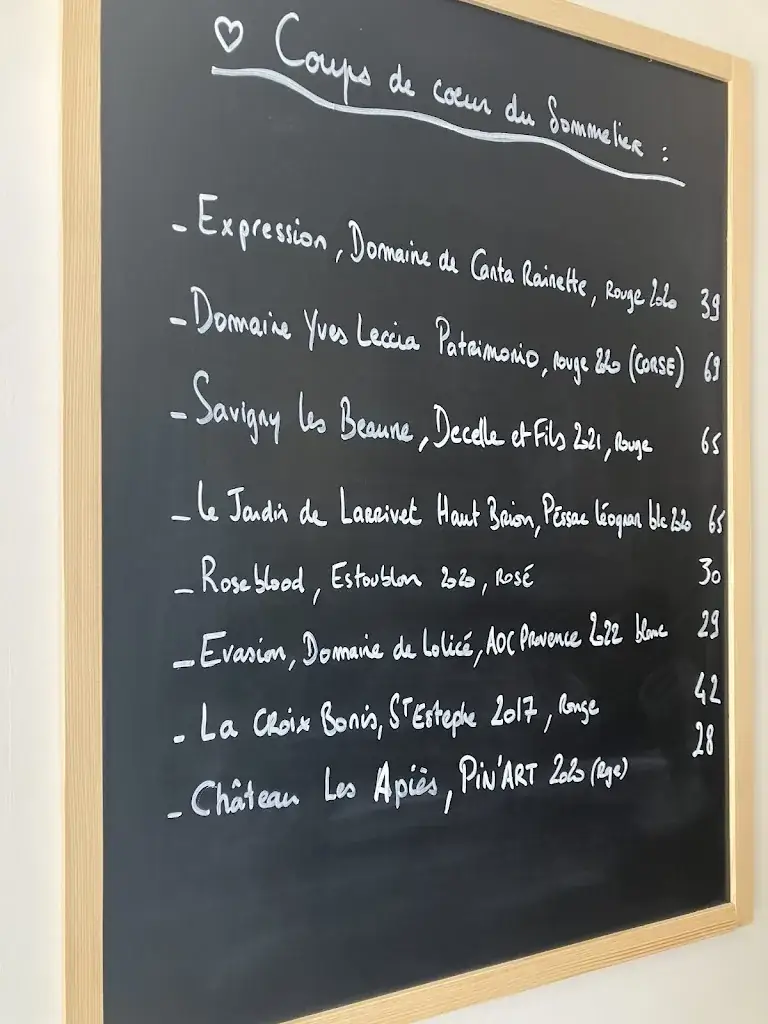 ♡ Coups de coeur du Sommelier :
- Expression, Domaine de Canta Rainette, Rouge 2020 39
- Domaine Yves Leccia Patrimonio, rouge 2020 (CORSE) 69
- Savigny les Beaune, Decelle et Fils 2021, Rouge 65
- Le Jardin de Larrivet Haut Brion, Péssac Léognan blc 2020 65
- Roseblood, Estoublon 2020, Rosé 30
- Evasion, Domaine de Lolicé, AOC Provence 2022 blanc 29
- La Croix Bonis, St Estephe 2017, Rouge 42
- Château Les Apiès, PIN'ART 2020 (Rge) 28